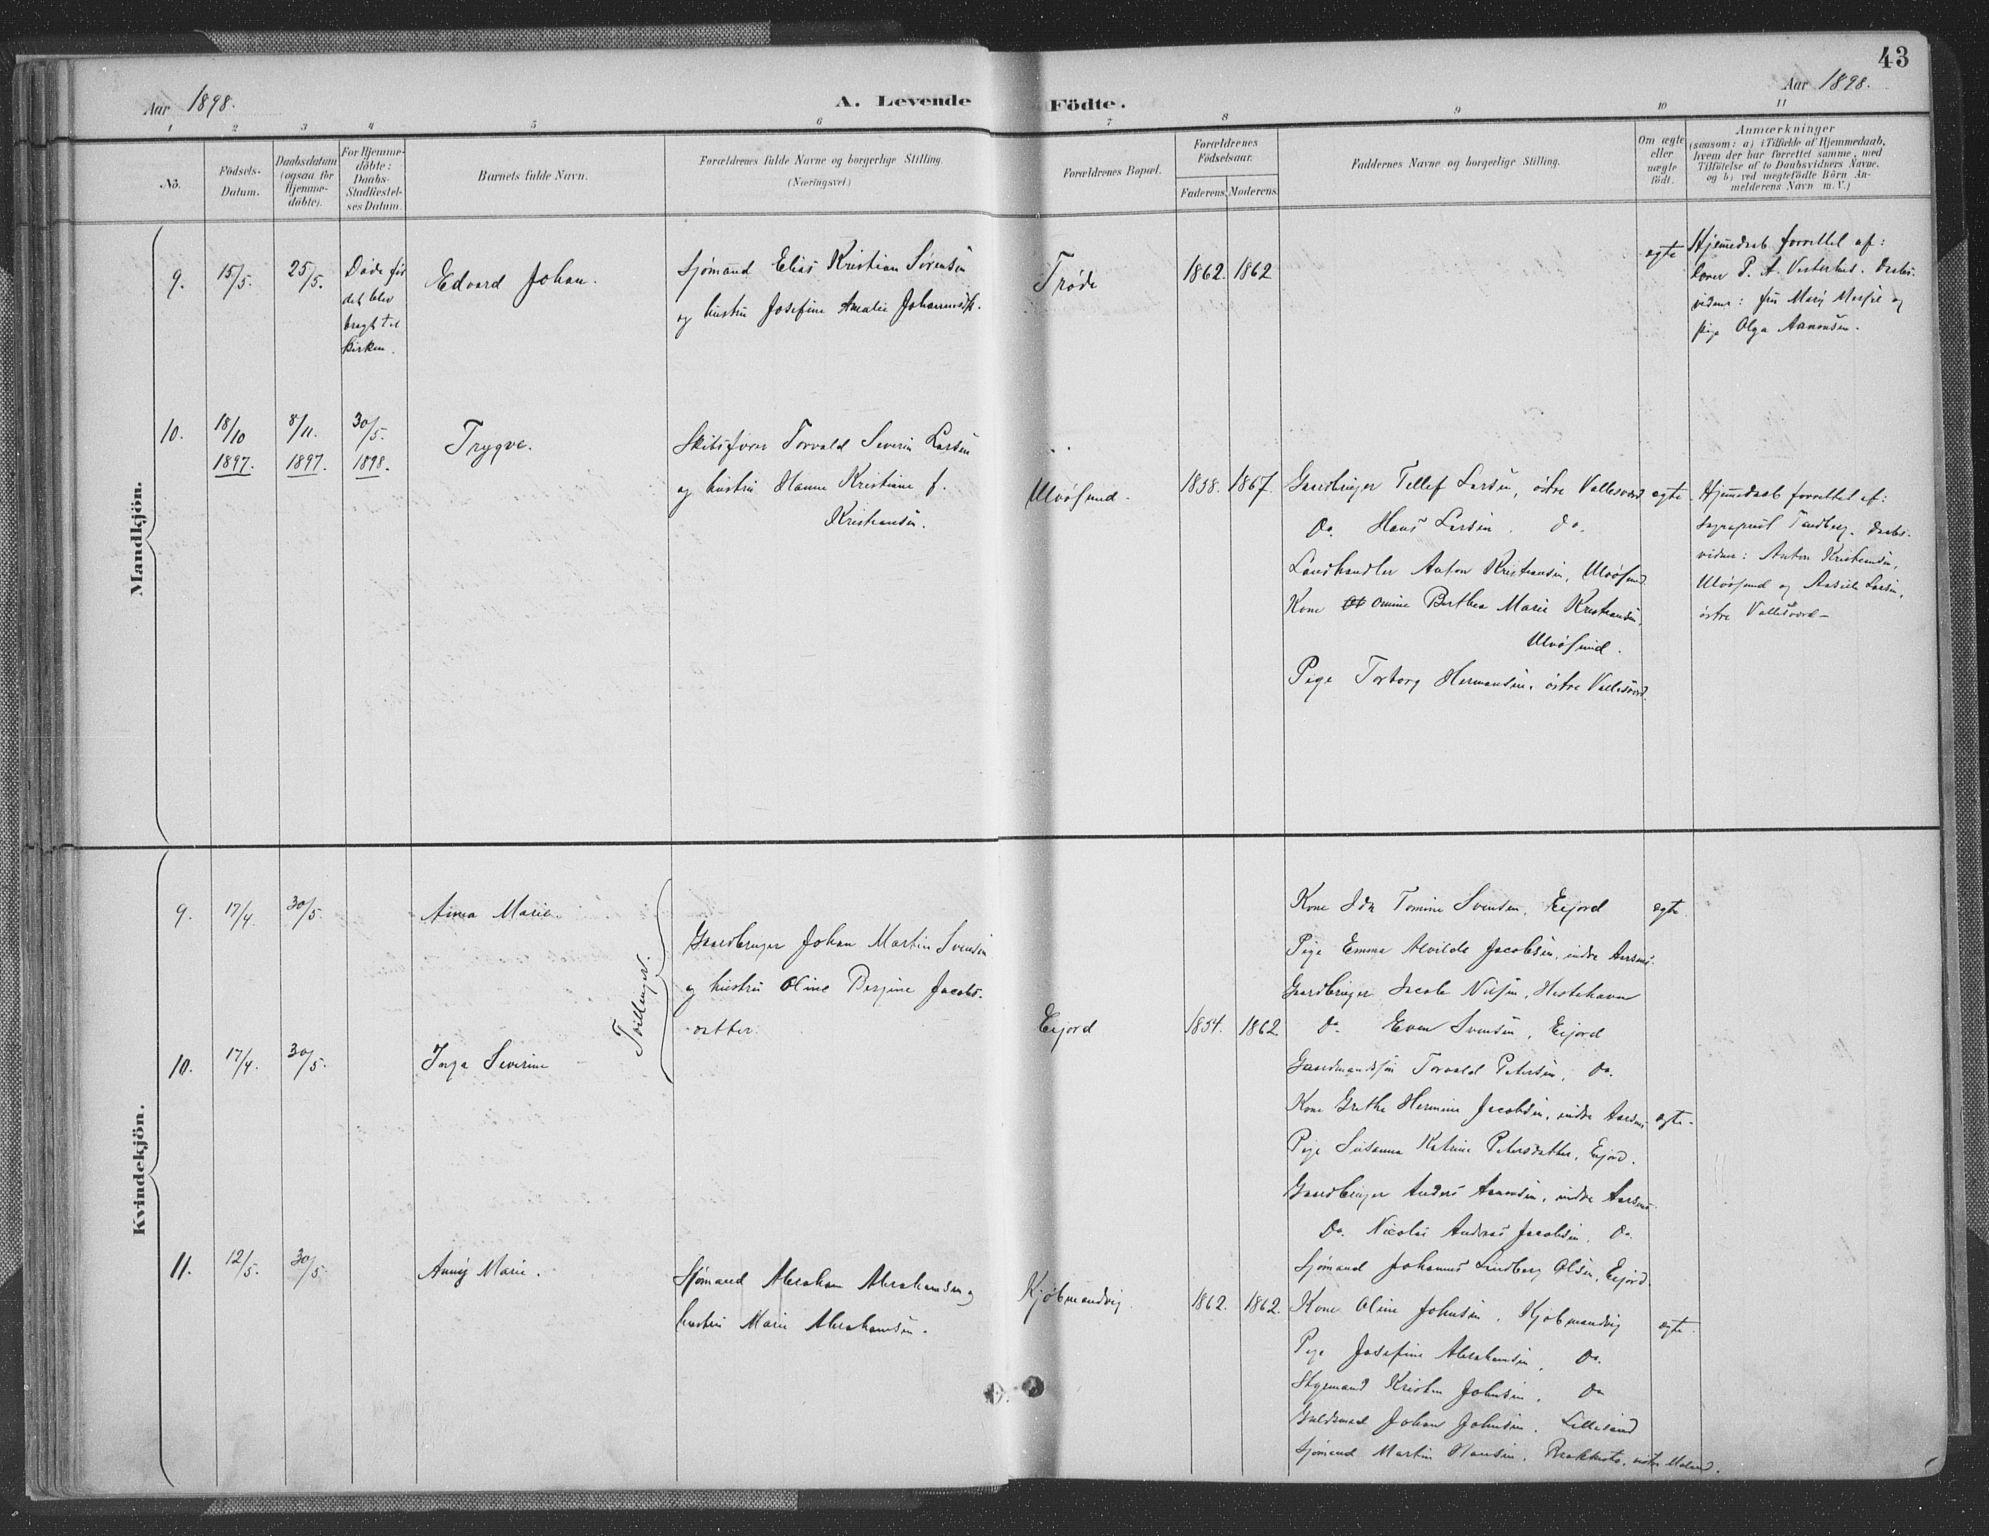 43
Aar 1898.
A. Levende Födte.
Aar 1898.
1 2 3 4 5 6 7 8 9 10 11
No.
Födsels-
Datum.
Daabsdatum
(ogsaa for
Hjemme-
döbte).
For Hjemme-
döbte:
Daabs-
Stadfæstel-
ses Datum.
Barnets fulde Navn.
Forældrenes fulde Navne og borgerlige Stilling.
(Næringsvei)
Forældrenes Bopæl.
Forældrenes
Födselsaar.
Faderens. Moderens.
Faddernes Navne og borgerlige Stilling.
Om ægte
eller
uægte
födt.
Anmærkninger
(saasom: a) i Tilfælde af Hjemmedaab,
hvem der har forrettet samme, med
Tilföielse af to Daabsvidners Navne.
og b) ved uægtefödte Börn An-
melderens Navn m. V.)
Mandkjön.
9.
15/5.
25/5.
Døde før
det blev
bragt til
kirken.
Edvard Johan.
Sjømand Elias Kristian Sørensen
og hustru Josefine Amalie
Trøde
1862. 1862
ægte
Hjemmedaab forrettet af:
Lærer P. A. Daabs-
vidner: fru Mary og
pige Olga Aanonsen.
10.
18/10
1897.
8/11.
1897.
30/5.
1898.
Trygve.
Skibsfører Torvald Severin Larsen
og hustru Hanne Kristiane f.
Kristiansen.
Ulvøsund.
1858. 1867.
Gaardbruger Tellef Larsen, østre Vallesværd
Do. Hans Larsen. do.
Landhandler Anton Kristiansen, Ulvøsund
Kone Omine Berthea Marie Kristiansen,
Ulvøsund.
Pige Torborg Hermansen, østre Vallesværd.
ægte
Hjemmedaab forrettet af:
Sogneprest Tandberg. Daabs-
vidner: Anton Kristiansen,
Ulvøsund og Larsen,
østre Vallesværd
Kvindekjön.
9.
17/4.
30/5.
Anna Marie.
Tvillinger.
Gaardbruger Johan Martin Svensen
og hustru Oline Bergine Jacobs-
datter.
Eijord
1854. 1862.
Kone Ida Tomine Svensen, Eijord
Pige Emma Alvilde Jacobsen, indre
Gaardbruger Jacob Nilsen, Hestehaven
Do. Even Svensen, Eijord
Gaardmandssøn Torvald Petersen, Do.
ægte.
10.
17/4.
30/5.
Inga Severine
Kone Grethe Hermine Jacobsen, indre
Pige Susanna Katrine Petersdatter, Eijord.
Gaardbruger Anders Aanonsen, indre
Do. Nicolai Andreas Jacobsen, Do.
Sjømand Johannes Lindberg Olsen, Eijord
ægte.
11.
12/5.
30/5.
Anny Marie.
Sjømand Abraham Abrahamsen og
hustru Marie Abrahamsen.
Kjøbmandvig.
1862. 1862.
Kone Oline Johnsen, Kjøbmandvig
Pige Josefine Abrahamsen, Do.
Styrmand Kristen Johnsen, Do
Guldsmed Johan Johnsen, Lillesand
Sjømand Martin Hansen,
ægte.